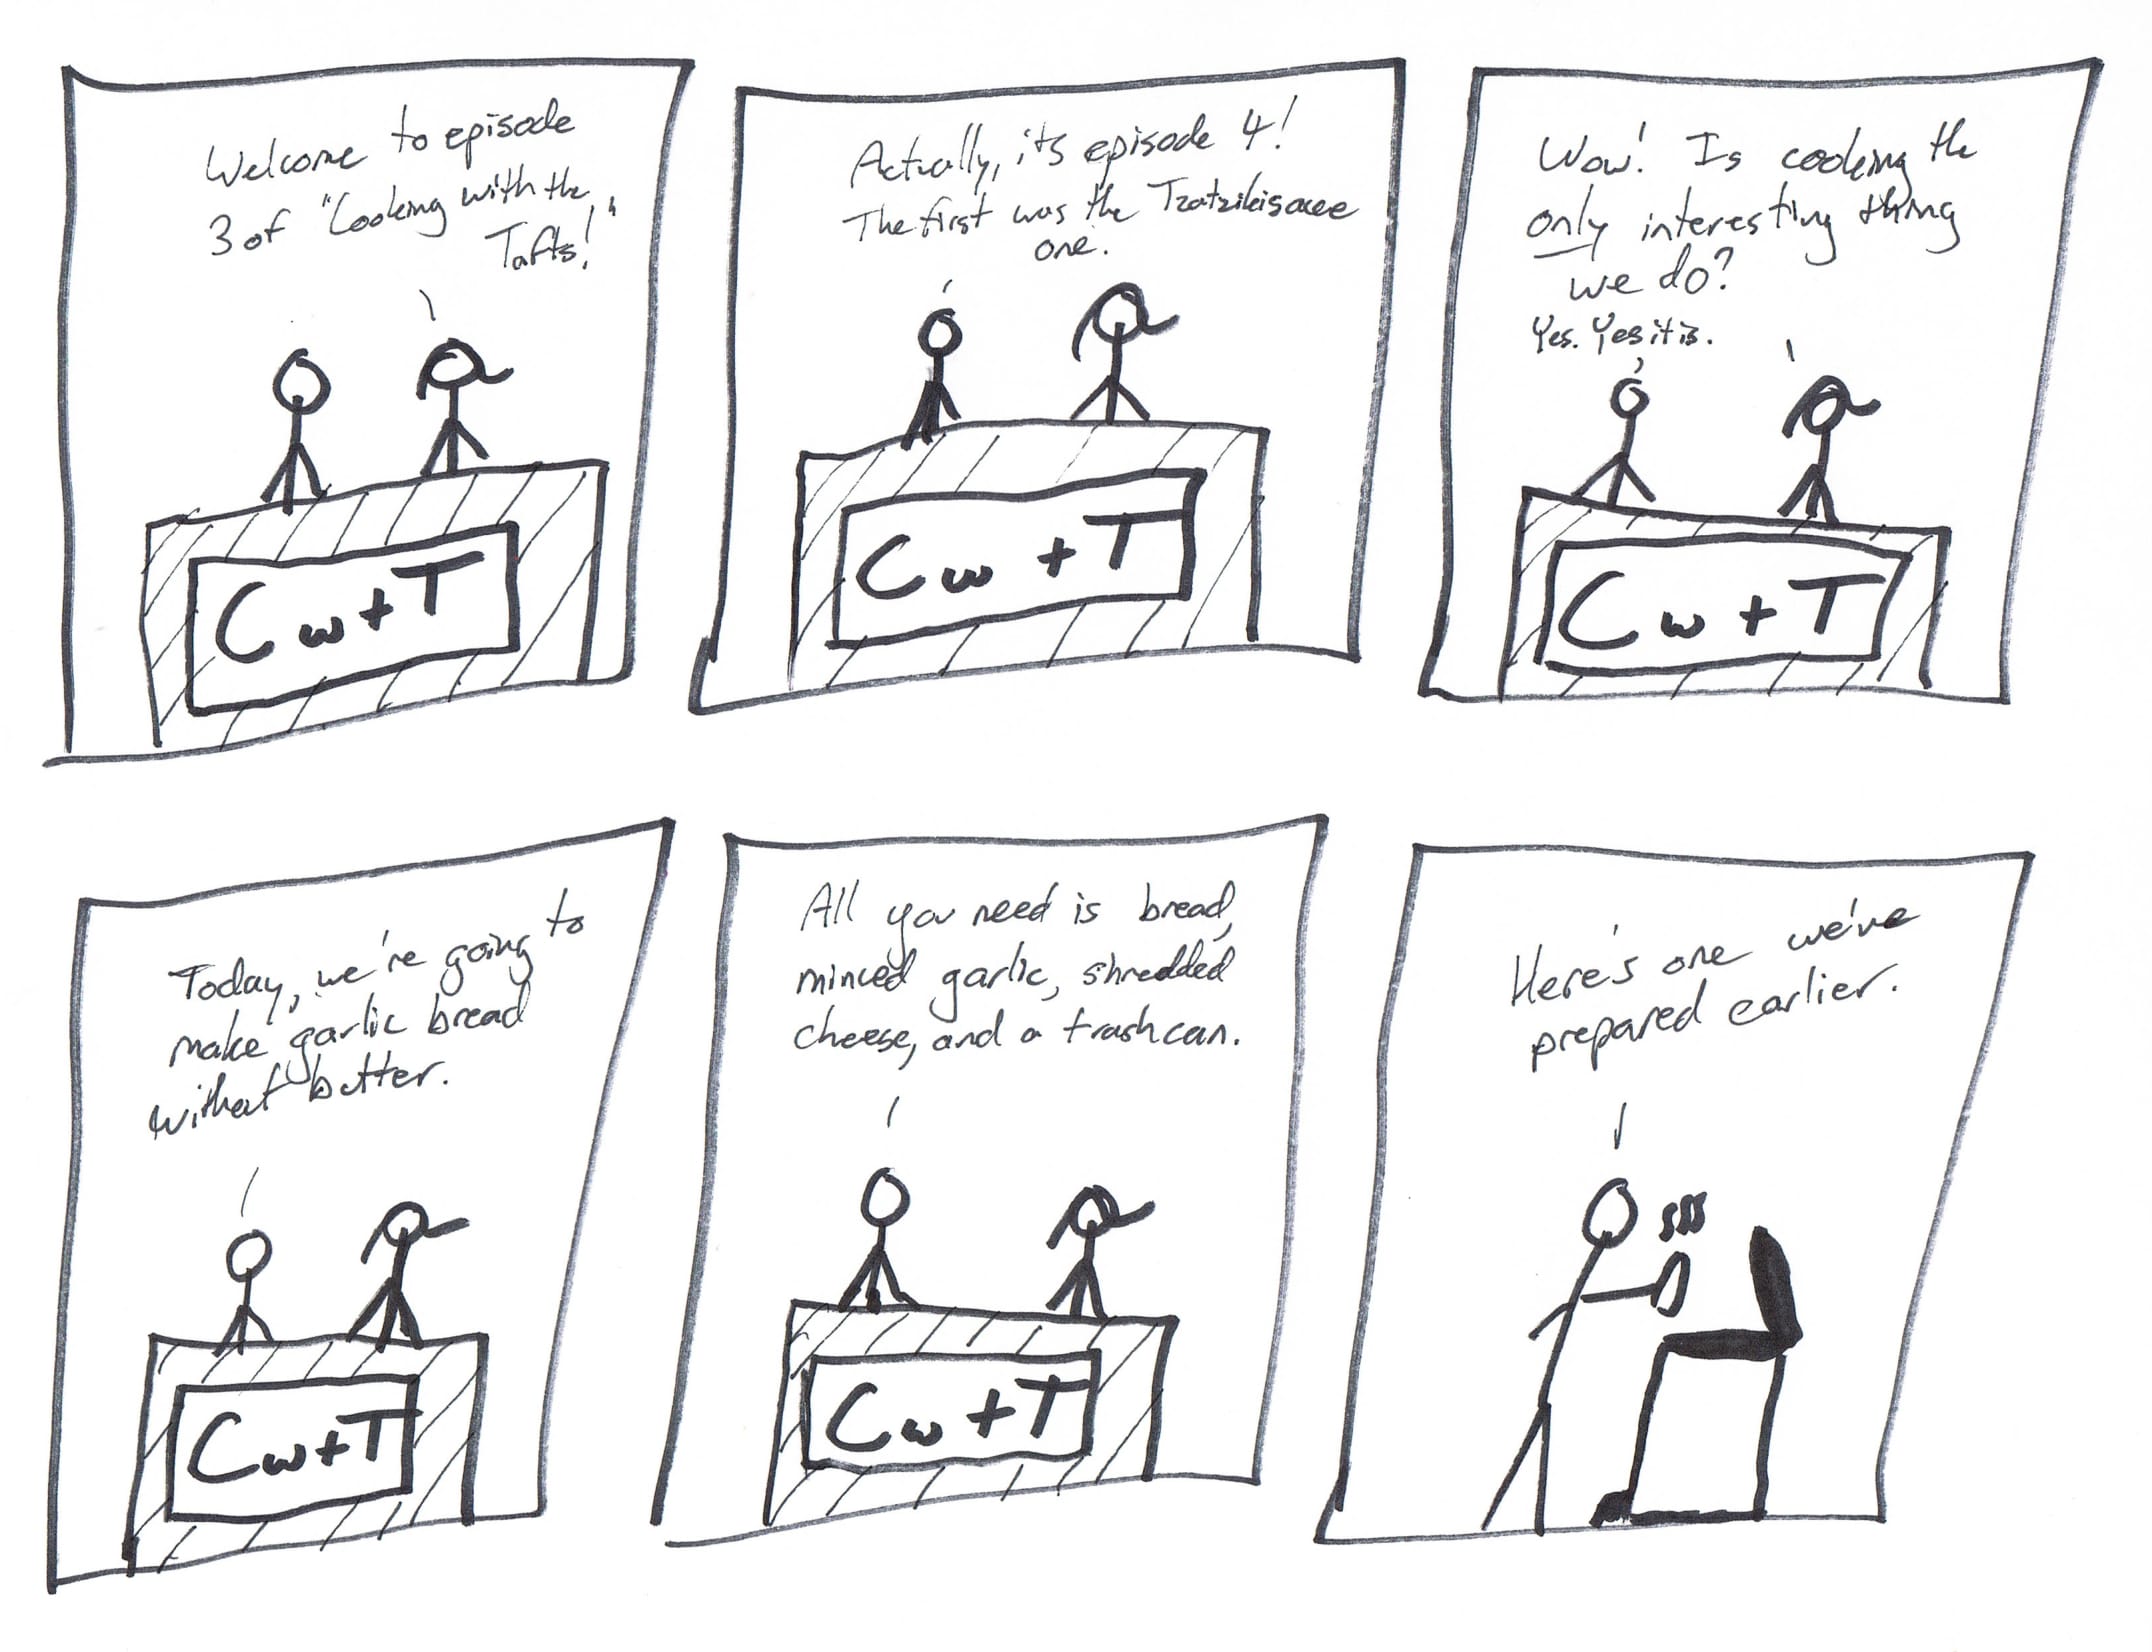 Welcome to episode
3 of "Cooking with the
Tafts!"
Cw+T
Actually, its episode 4!
The first was the Tzatziki sauce
one.
Cw+T
Wow! Is cooking the
only interesting thing
we do?
Yes. Yes it is.
Cw+T
Today, we're going to
make garlic bread
without butter.
Cw+T
All you need is bread,
minced garlic, shredded
cheese, and a trash can.
Cw+T
Here's one we've
prepared earlier.